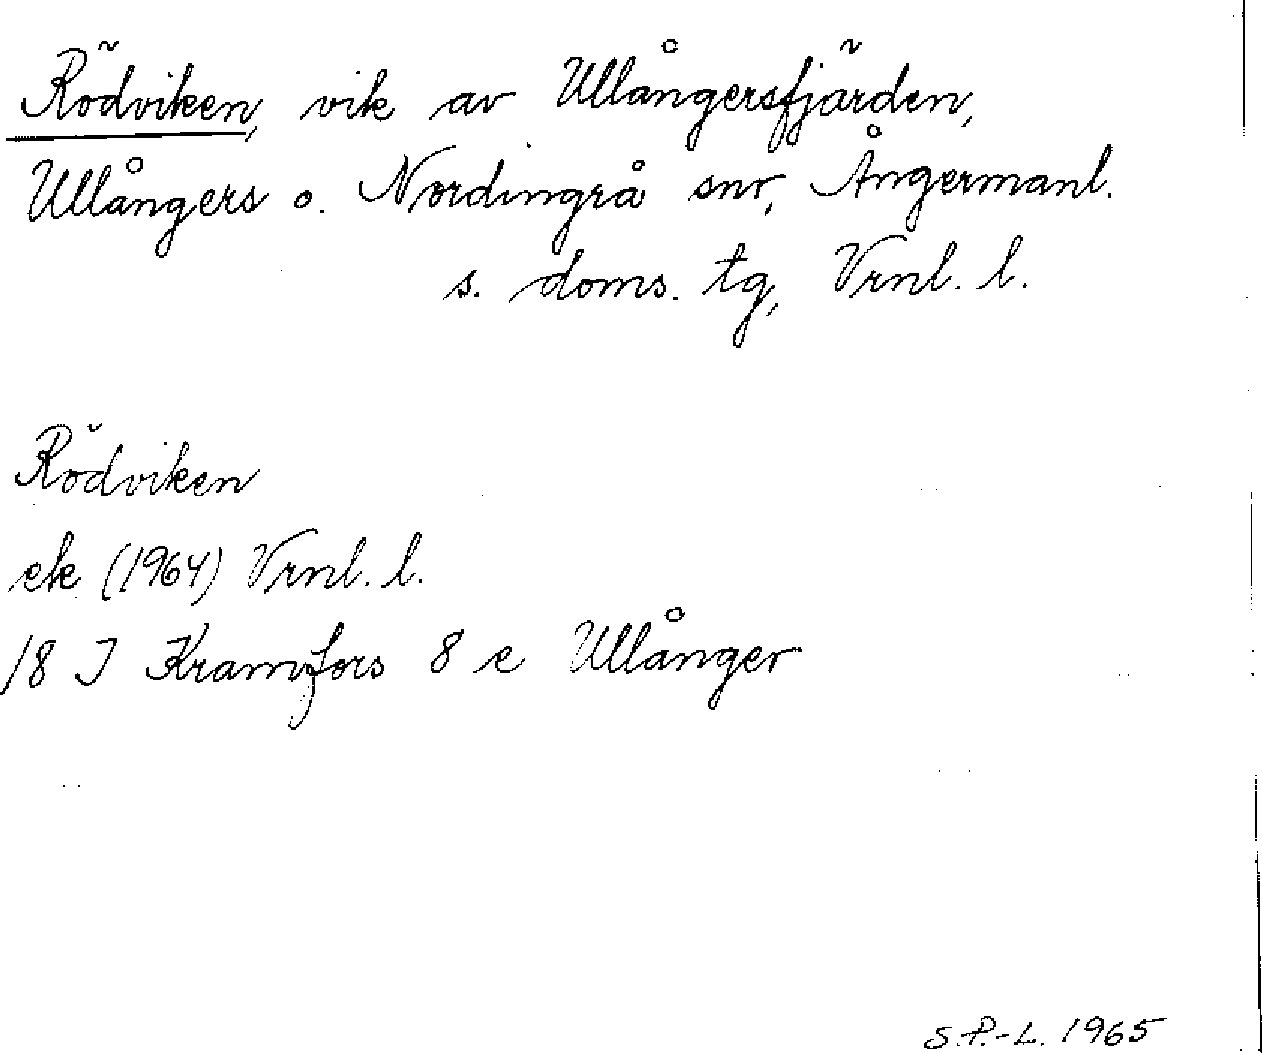 Rödviken, vik av Ullångersfjärden,
Ullångers o. Nordingrå snr, Ångermanl.
s. doms. tg, Vrnl. l.
Rödviken
ek (1964) Vrnl. l.
18 I Kramfors 8 e Ullånger
S.P.-L. 1965